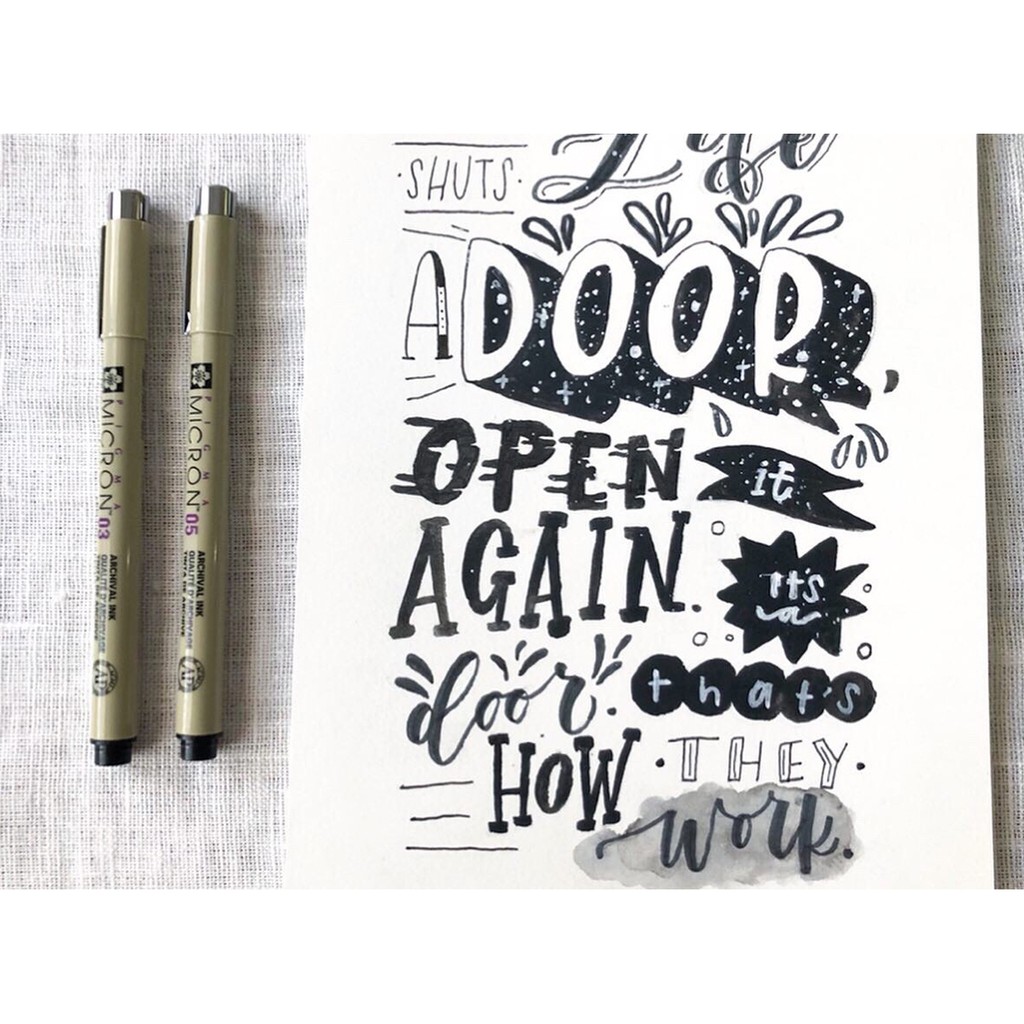 Life
·SHUTS·
A DOOR,
OPEN it
AGAIN.
It's a
door.
that's
HOW ·THEY·
work.
PIGMA
MICRON 03
ARCHIVAL INK
QUALITÉ D'ARCHIVAGE
TINTA DE ARCHIVE
PIGMA
MICRON 05
ARCHIVAL INK
QUALITÉ D'ARCHIVAGE
TINTA DE ARCHIVE